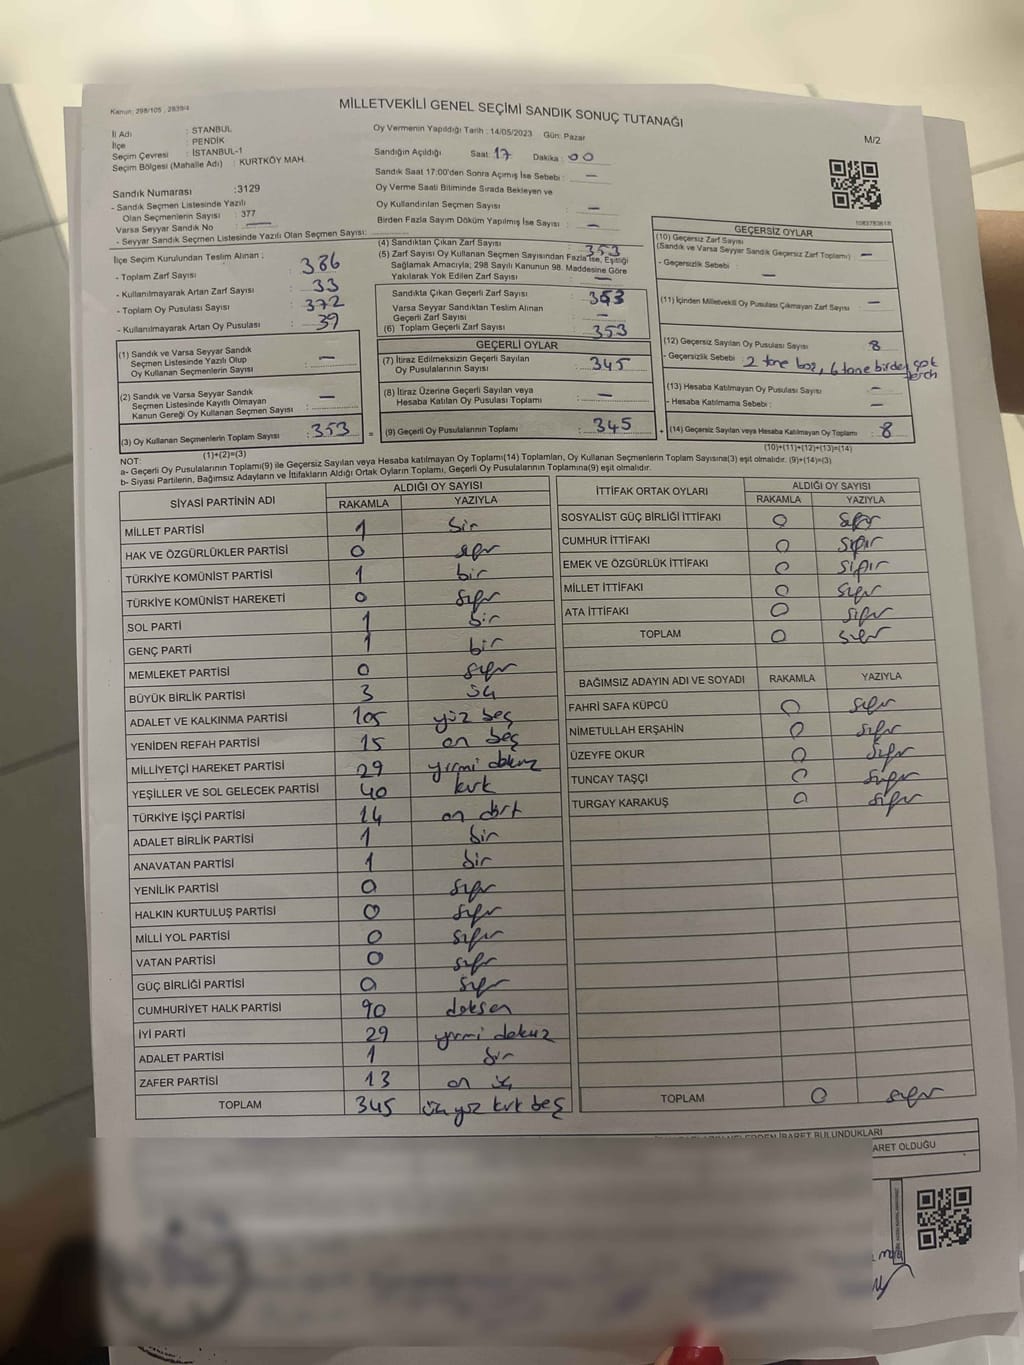 Kanun: 298/105 , 2839/4
MİLLETVEKİLİ GENEL SEÇİMİ SANDIK SONUÇ TUTANAĞI
M/2
İl Adı : STANBUL
İlçe : PENDİK
Seçim Çevresi : İSTANBUL-1
Seçim Bölgesi (Mahalle Adı) : KURTKÖY MAH.
Oy Vermenin Yapıldığı Tarih : 14/05/2023 Gün: Pazar
Sandığın Açıldığı Saat: 17 Dakika : 00
Sandık Saat 17:00'den Sonra Açımış İse Sebebi : —
Oy Verme Saati Bitiminde Sırada Bekleyen ve
Oy Kullandırılan Seçmen Sayısı : —
Birden Fazla Sayım Döküm Yapılmış İse Sayısı : —
Sandık Numarası :3129
- Sandık Seçmen Listesinde Yazılı
Olan Seçmenlerin Sayısı : 377
Varsa Seyyar Sandık No : —
- Seyyar Sandık Seçmen Listesinde Yazılı Olan Seçmen Sayısı:
İlçe Seçim Kurulundan Teslim Alınan :
- Toplam Zarf Sayısı : 386
- Kullanılmayarak Artan Zarf Sayısı : 33
- Toplam Oy Pusulası Sayısı : 372
- Kullanılmayarak Artan Oy Pusulası : 39
(1) Sandık ve Varsa Seyyar Sandık
Seçmen Listesinde Yazılı Olup
Oy Kullanan Seçmenlerin Sayısı : —
(2) Sandık ve Varsa Seyyar Sandık
Seçmen Listesinde Kayıtlı Olmayan
Kanun Gereği Oy Kullanan Seçmen Sayısı : —
(3) Oy Kullanan Seçmenlerin Toplam Sayısı : 353
(1)+(2)=(3)
(4) Sandıktan Çıkan Zarf Sayısı : 353
(5) Zarf Sayısı Oy Kullanan Seçmen Sayısından Fazla İse, Eşitliği
Sağlamak Amacıyla; 298 Sayılı Kanunun 98. Maddesine Göre
Yakılarak Yok Edilen Zarf Sayısı : —
Sandıkta Çıkan Geçerli Zarf Sayısı : 353
Varsa Seyyar Sandıktan Teslim Alınan
Geçerli Zarf Sayısı : —
(6) Toplam Geçerli Zarf Sayısı : 353
GEÇERLİ OYLAR
(7) İtiraz Edilmeksizin Geçerli Sayılan
Oy Pusulalarının Sayısı : 345
(8) İtiraz Üzerine Geçerli Sayılan veya
Hesaba Katılan Oy Pusulası Toplamı : —
= (9) Geçerli Oy Pusulalarının Toplamı : 345
1083783618
GEÇERSİZ OYLAR
(10) Geçersiz Zarf Sayısı
(Sandık ve Varsa Seyyar Sandık Geçersiz Zarf Toplamı) : —
- Geçersizlik Sebebi : —
(11) İçinden Milletvekili Oy Pusulası Çıkmayan Zarf Sayısı : —
(12) Geçersiz Sayılan Oy Pusulası Sayısı : 8
- Geçersizlik Sebebi : 2 tane boş, 6 tane birden çok
terch
(13) Hesaba Katılmayan Oy Pusulası Sayısı : —
- Hesaba Katılmama Sebebi : —
+ (14) Geçersiz Sayılan veya Hesaba Katılmayan Oy Toplamı : 8
(10)+(11)+(12)+(13)=(14)
NOT:
a- Geçerli Oy Pusulalarının Toplamı(9) ile Geçersiz Sayılan veya Hesaba Katılmayan Oy Toplamı(14) Toplamları, Oy Kullanan Seçmenlerin Toplam Sayısına(3) eşit olmalıdır. (9)+(14)=(3)
b- Siyasi Partilerin, Bağımsız Adayların ve İttifakların Aldığı Ortak Oyların Toplamı, Geçerli Oy Pusulalarının Toplamına(9) eşit olmalıdır.
SİYASİ PARTİNİN ADI ALDIĞI OY SAYISI
RAKAMLA YAZIYLA
MİLLET PARTİSİ 1 bir
HAK VE ÖZGÜRLÜKLER PARTİSİ 0 sıfır
TÜRKİYE KOMÜNİST PARTİSİ 1 bir
TÜRKİYE KOMÜNİST HAREKETİ 0 sıfır
SOL PARTİ 1 bir
GENÇ PARTİ 1 bir
MEMLEKET PARTİSİ 0 sıfır
BÜYÜK BİRLİK PARTİSİ 3 üç
ADALET VE KALKINMA PARTİSİ 105 yüz beş
YENİDEN REFAH PARTİSİ 15 on beş
MİLLİYETÇİ HAREKET PARTİSİ 29 yirmi dokuz
YEŞİLLER VE SOL GELECEK PARTİSİ 40 kırk
TÜRKİYE İŞÇİ PARTİSİ 14 on dört
ADALET BİRLİK PARTİSİ 1 bir
ANAVATAN PARTİSİ 1 bir
YENİLİK PARTİSİ 0 sıfır
HALKIN KURTULUŞ PARTİSİ 0 sıfır
MİLLİ YOL PARTİSİ 0 sıfır
VATAN PARTİSİ 0 sıfır
GÜÇ BİRLİĞİ PARTİSİ 0 sıfır
CUMHURİYET HALK PARTİSİ 90 doksan
İYİ PARTİ 29 yirmi dokuz
ADALET PARTİSİ 1 bir
ZAFER PARTİSİ 13 on üç
TOPLAM 345 üç yüz kırk beş
İTTİFAK ORTAK OYLARI ALDIĞI OY SAYISI
RAKAMLA YAZIYLA
SOSYALİST GÜÇ BİRLİĞİ İTTİFAKI 0 sıfır
CUMHUR İTTİFAKI 0 sıfır
EMEK VE ÖZGÜRLÜK İTTİFAKI 0 sıfır
MİLLET İTTİFAKI 0 sıfır
ATA İTTİFAKI 0 sıfır
TOPLAM 0 sıfır
BAĞIMSIZ ADAYIN ADI VE SOYADI RAKAMLA YAZIYLA
FAHRİ SAFA KÜPCÜ 0 sıfır
NİMETULLAH ERŞAHİN 0 sıfır
ÜZEYFE OKUR 0 sıfır
TUNCAY TAŞÇI 0 sıfır
TURGAY KARAKUŞ 0 sıfır
TOPLAM 0 sıfır
İBARET BULUNDUKLARI
ARET OLDUĞU